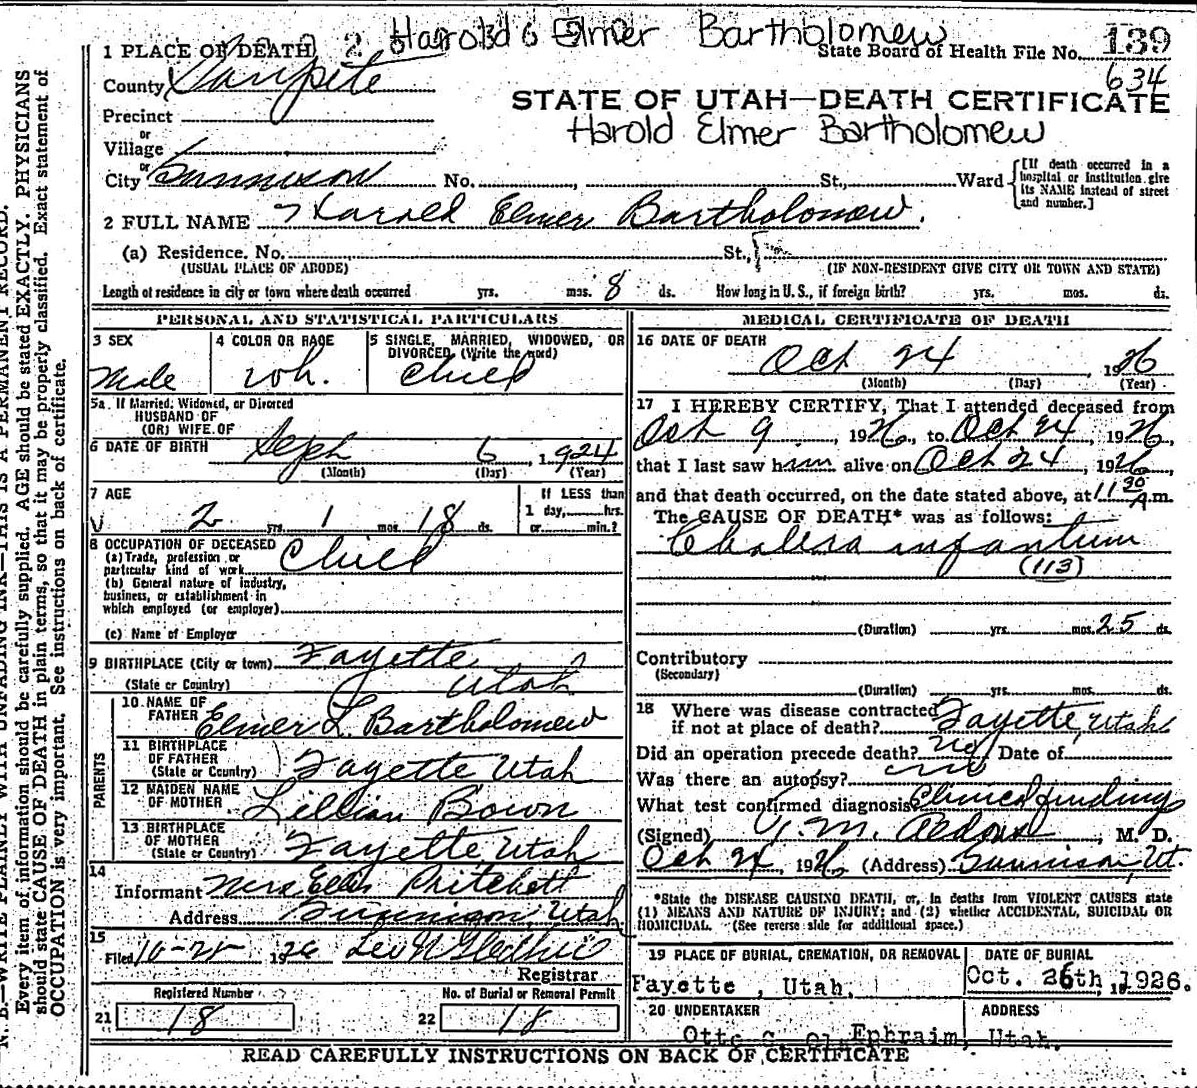 Harold Elmer Bartholomew
1 PLACE OF DEATH
State Board of Health File No. 139
634
County Sanpete
STATE OF UTAH—DEATH CERTIFICATE
Precinct
Harold Elmer Bartholomew
or
Village
or
City Gunnison No. , St., Ward
[If death occurred in a hospital or institution give its NAME instead of street and number.]
2 FULL NAME Harold Elmer Bartholomew.
(a) Residence. No. St.,
(USUAL PLACE OF ABODE) (IF NON-RESIDENT GIVE CITY OR TOWN AND STATE)
Length of residence in city or town where death occurred yrs. mos. 8 ds. How long in U. S., if foreign birth? yrs. mos. ds.
PERSONAL AND STATISTICAL PARTICULARS
3 SEX
Male
4 COLOR OR RACE
wh.
5 SINGLE, MARRIED, WIDOWED, OR DIVORCED (Write the word)
Child
5a If Married, Widowed, or Divorced
HUSBAND OF
(OR) WIFE OF
6 DATE OF BIRTH Sept 6, 1924
(Month) (Day) (Year)
7 AGE
2 yrs. 1 mos. 18 ds.
If LESS than
1 day, hrs.
or min.?
8 OCCUPATION OF DECEASED
(a) Trade, profession, or
particular kind of work Child
(b) General nature of industry,
business, or establishment in
which employed (or employer)
(c) Name of Employer
9 BIRTHPLACE (City or town) Fayette
(State or Country) Utah
PARENTS
10 NAME OF
FATHER Elmer L. Bartholomew
11 BIRTHPLACE
OF FATHER
(State or Country) Fayette Utah
12 MAIDEN NAME
OF MOTHER Lillian Bown
13 BIRTHPLACE
OF MOTHER
(State or Country) Fayette Utah
14
Informant Mrs Ellis Pritchett
Address Gunnison, Utah
15
Filed 10-25 1926
Registrar
Registered Number
21 18
No. of Burial or Removal Permit
22 18
MEDICAL CERTIFICATE OF DEATH
16 DATE OF DEATH
Oct 24, 1926
(Month) (Day) (Year)
17 I HEREBY CERTIFY, That I attended deceased from
Oct 9, 1926, to Oct 24, 1926,
that I last saw him alive on Oct 24, 1926,
and that death occurred, on the date stated above, at 11 30 A m.
The CAUSE OF DEATH* was as follows:
Cholera infantum
(113)
(Duration) yrs. mos. 25 ds.
Contributory
(Secondary)
(Duration) yrs. mos. ds.
18 Where was disease contracted
if not at place of death? Fayette, Utah
Did an operation precede death? no Date of
Was there an autopsy? no
What test confirmed diagnosis? Clinical findings
(Signed) M. , M. D.
Oct 24, 1926 (Address) Gunnison, Ut.
*State the DISEASE CAUSING DEATH, or, in deaths from VIOLENT CAUSES state
(1) MEANS AND NATURE OF INJURY; and (2) whether ACCIDENTAL, SUICIDAL OR
HOMICIDAL. (See reverse side for additional space.)
19 PLACE OF BURIAL, CREMATION, OR REMOVAL
Fayette, Utah.
DATE OF BURIAL
Oct. 26th, 1926.
20 UNDERTAKER ADDRESS
Otto Ephraim, Utah.
READ CAREFULLY INSTRUCTIONS ON BACK OF CERTIFICATE
N. B.—WRITE PLAINLY WITH UNFADING INK—THIS IS A PERMANENT RECORD.
Every item of information should be carefully supplied. AGE should be stated EXACTLY. PHYSICIANS
should state CAUSE OF DEATH in plain terms, so that it may be properly classified. Exact statement of
OCCUPATION is very important. See instructions on back of certificate.